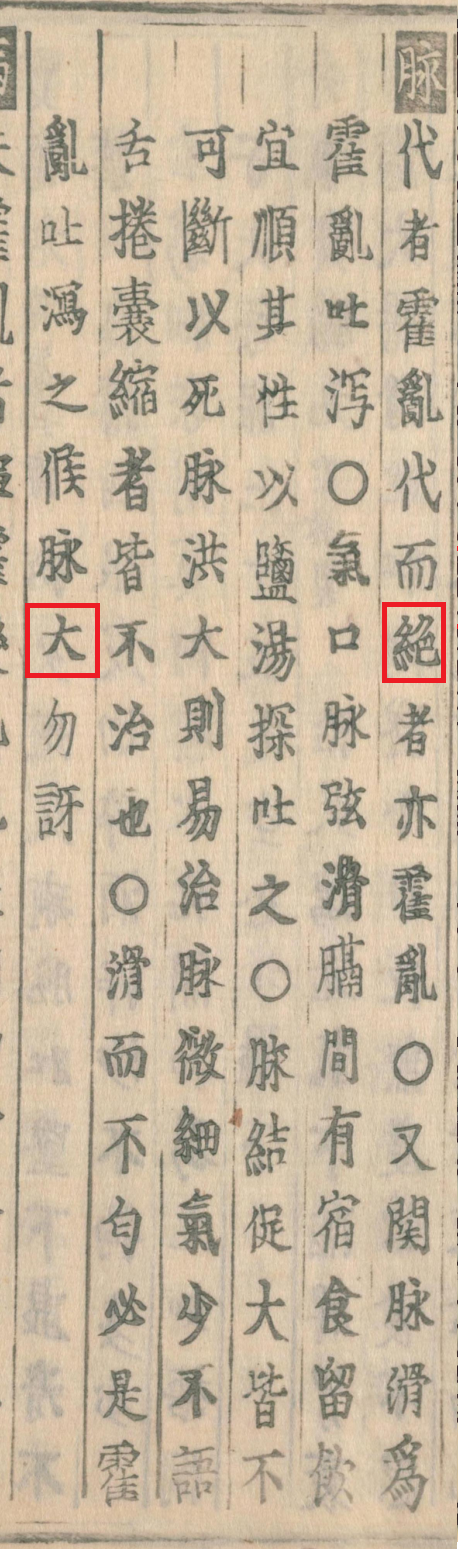 脉代者霍亂代而絶者亦霍亂○又関脉滑爲
霍亂吐泻○氣口脉弦滑膈間有宿食留飲
宜順其性以鹽湯探吐之○脉結促大皆不
可斷以死脉洪大則易治脉微細氣少不語
舌捲囊縮者皆不治也○滑而不匀必是霍
亂吐瀉之候脉大勿訝